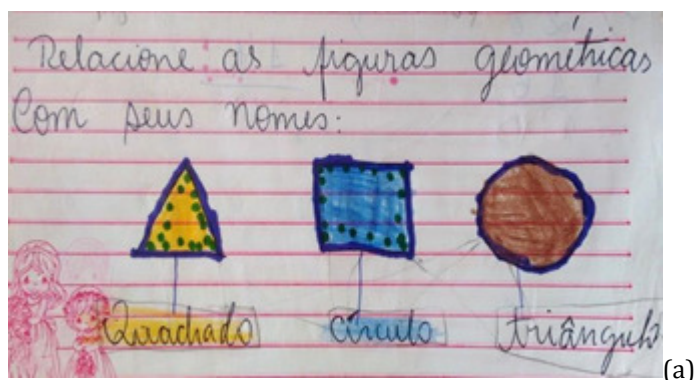 Relacione as figuras geométricas
Com seus nomes:
Quadrado círculo triângulo
(a)